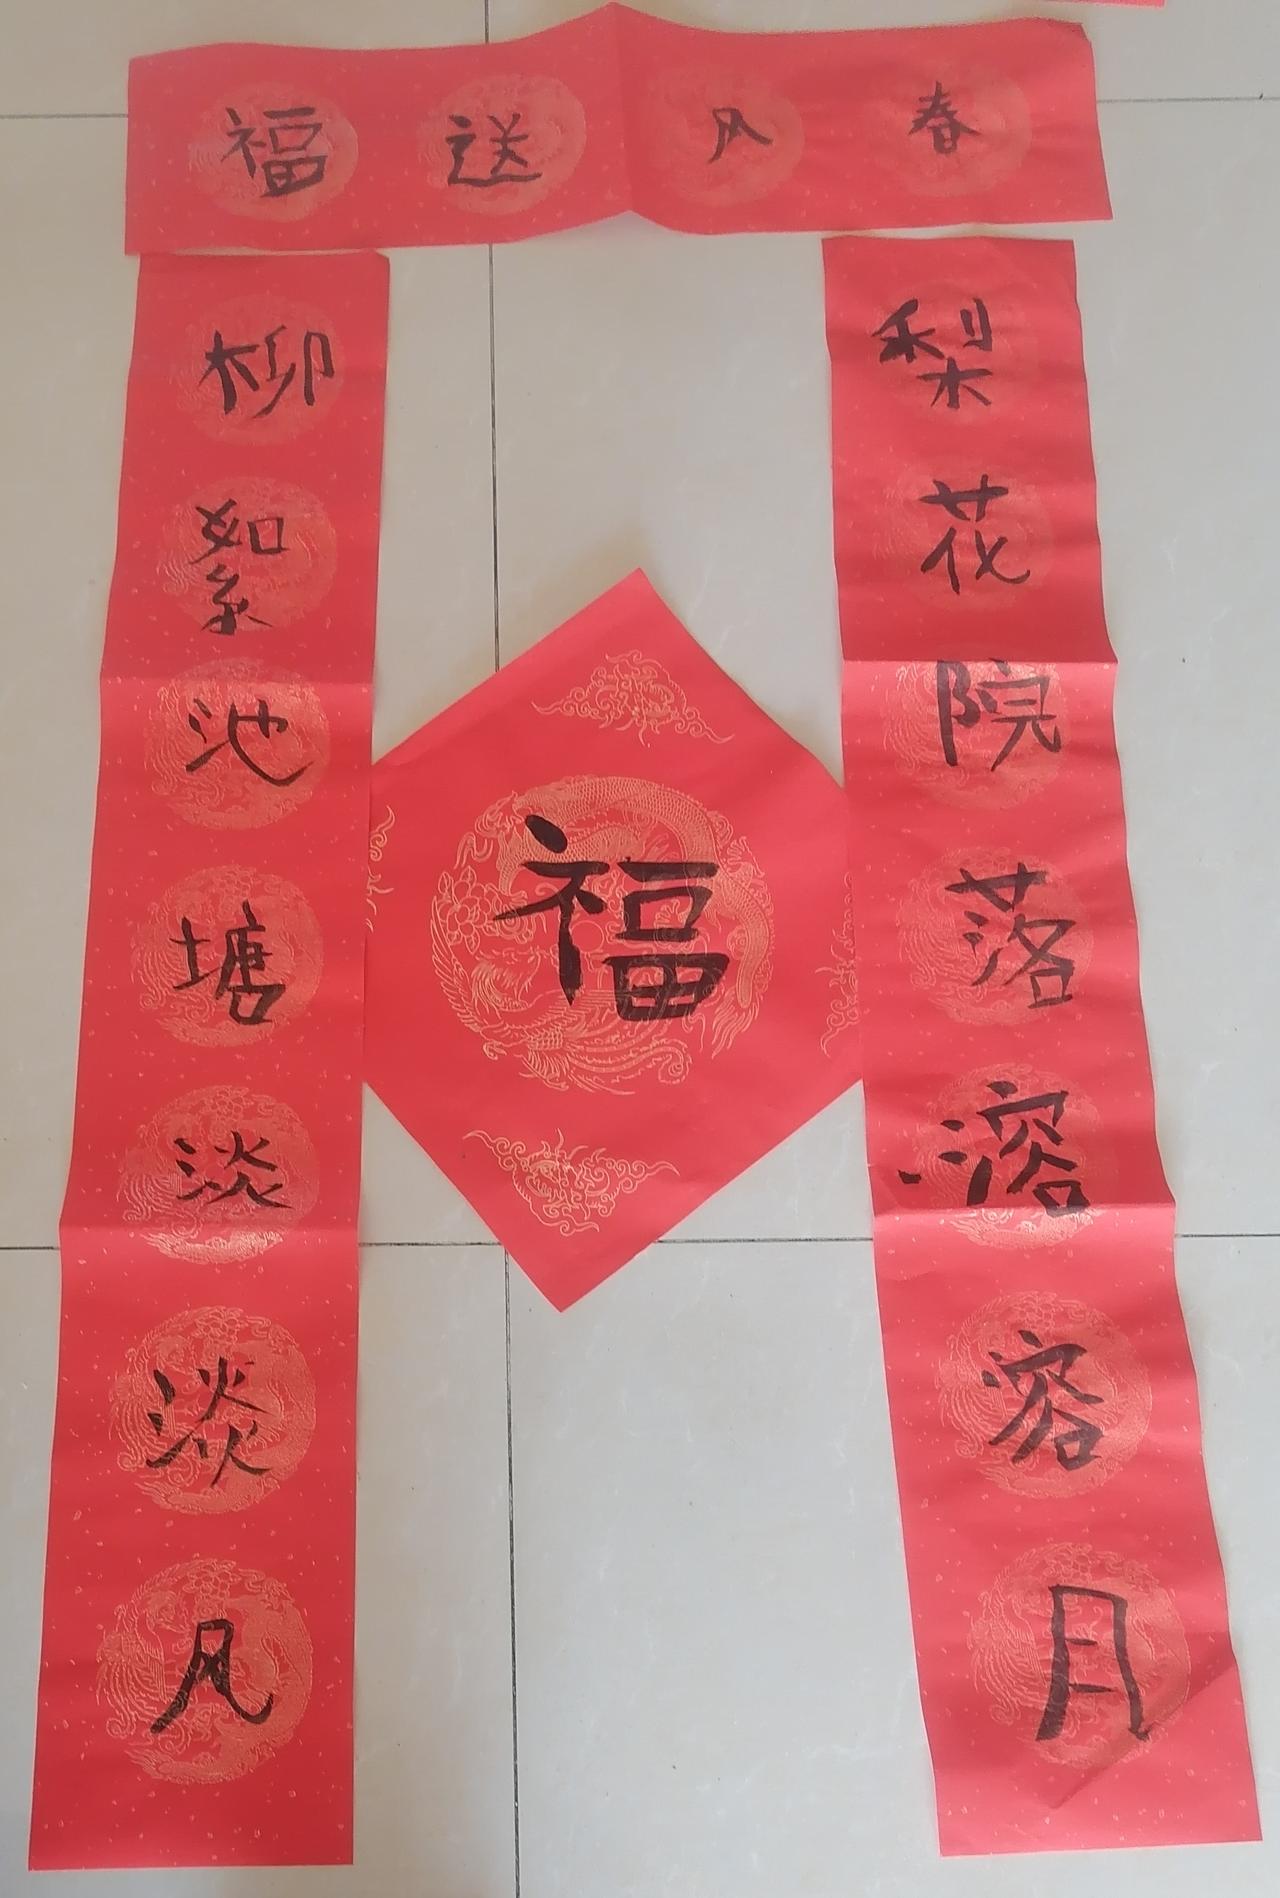 春风送福
梨花院落溶溶月
柳絮池塘淡淡风
福